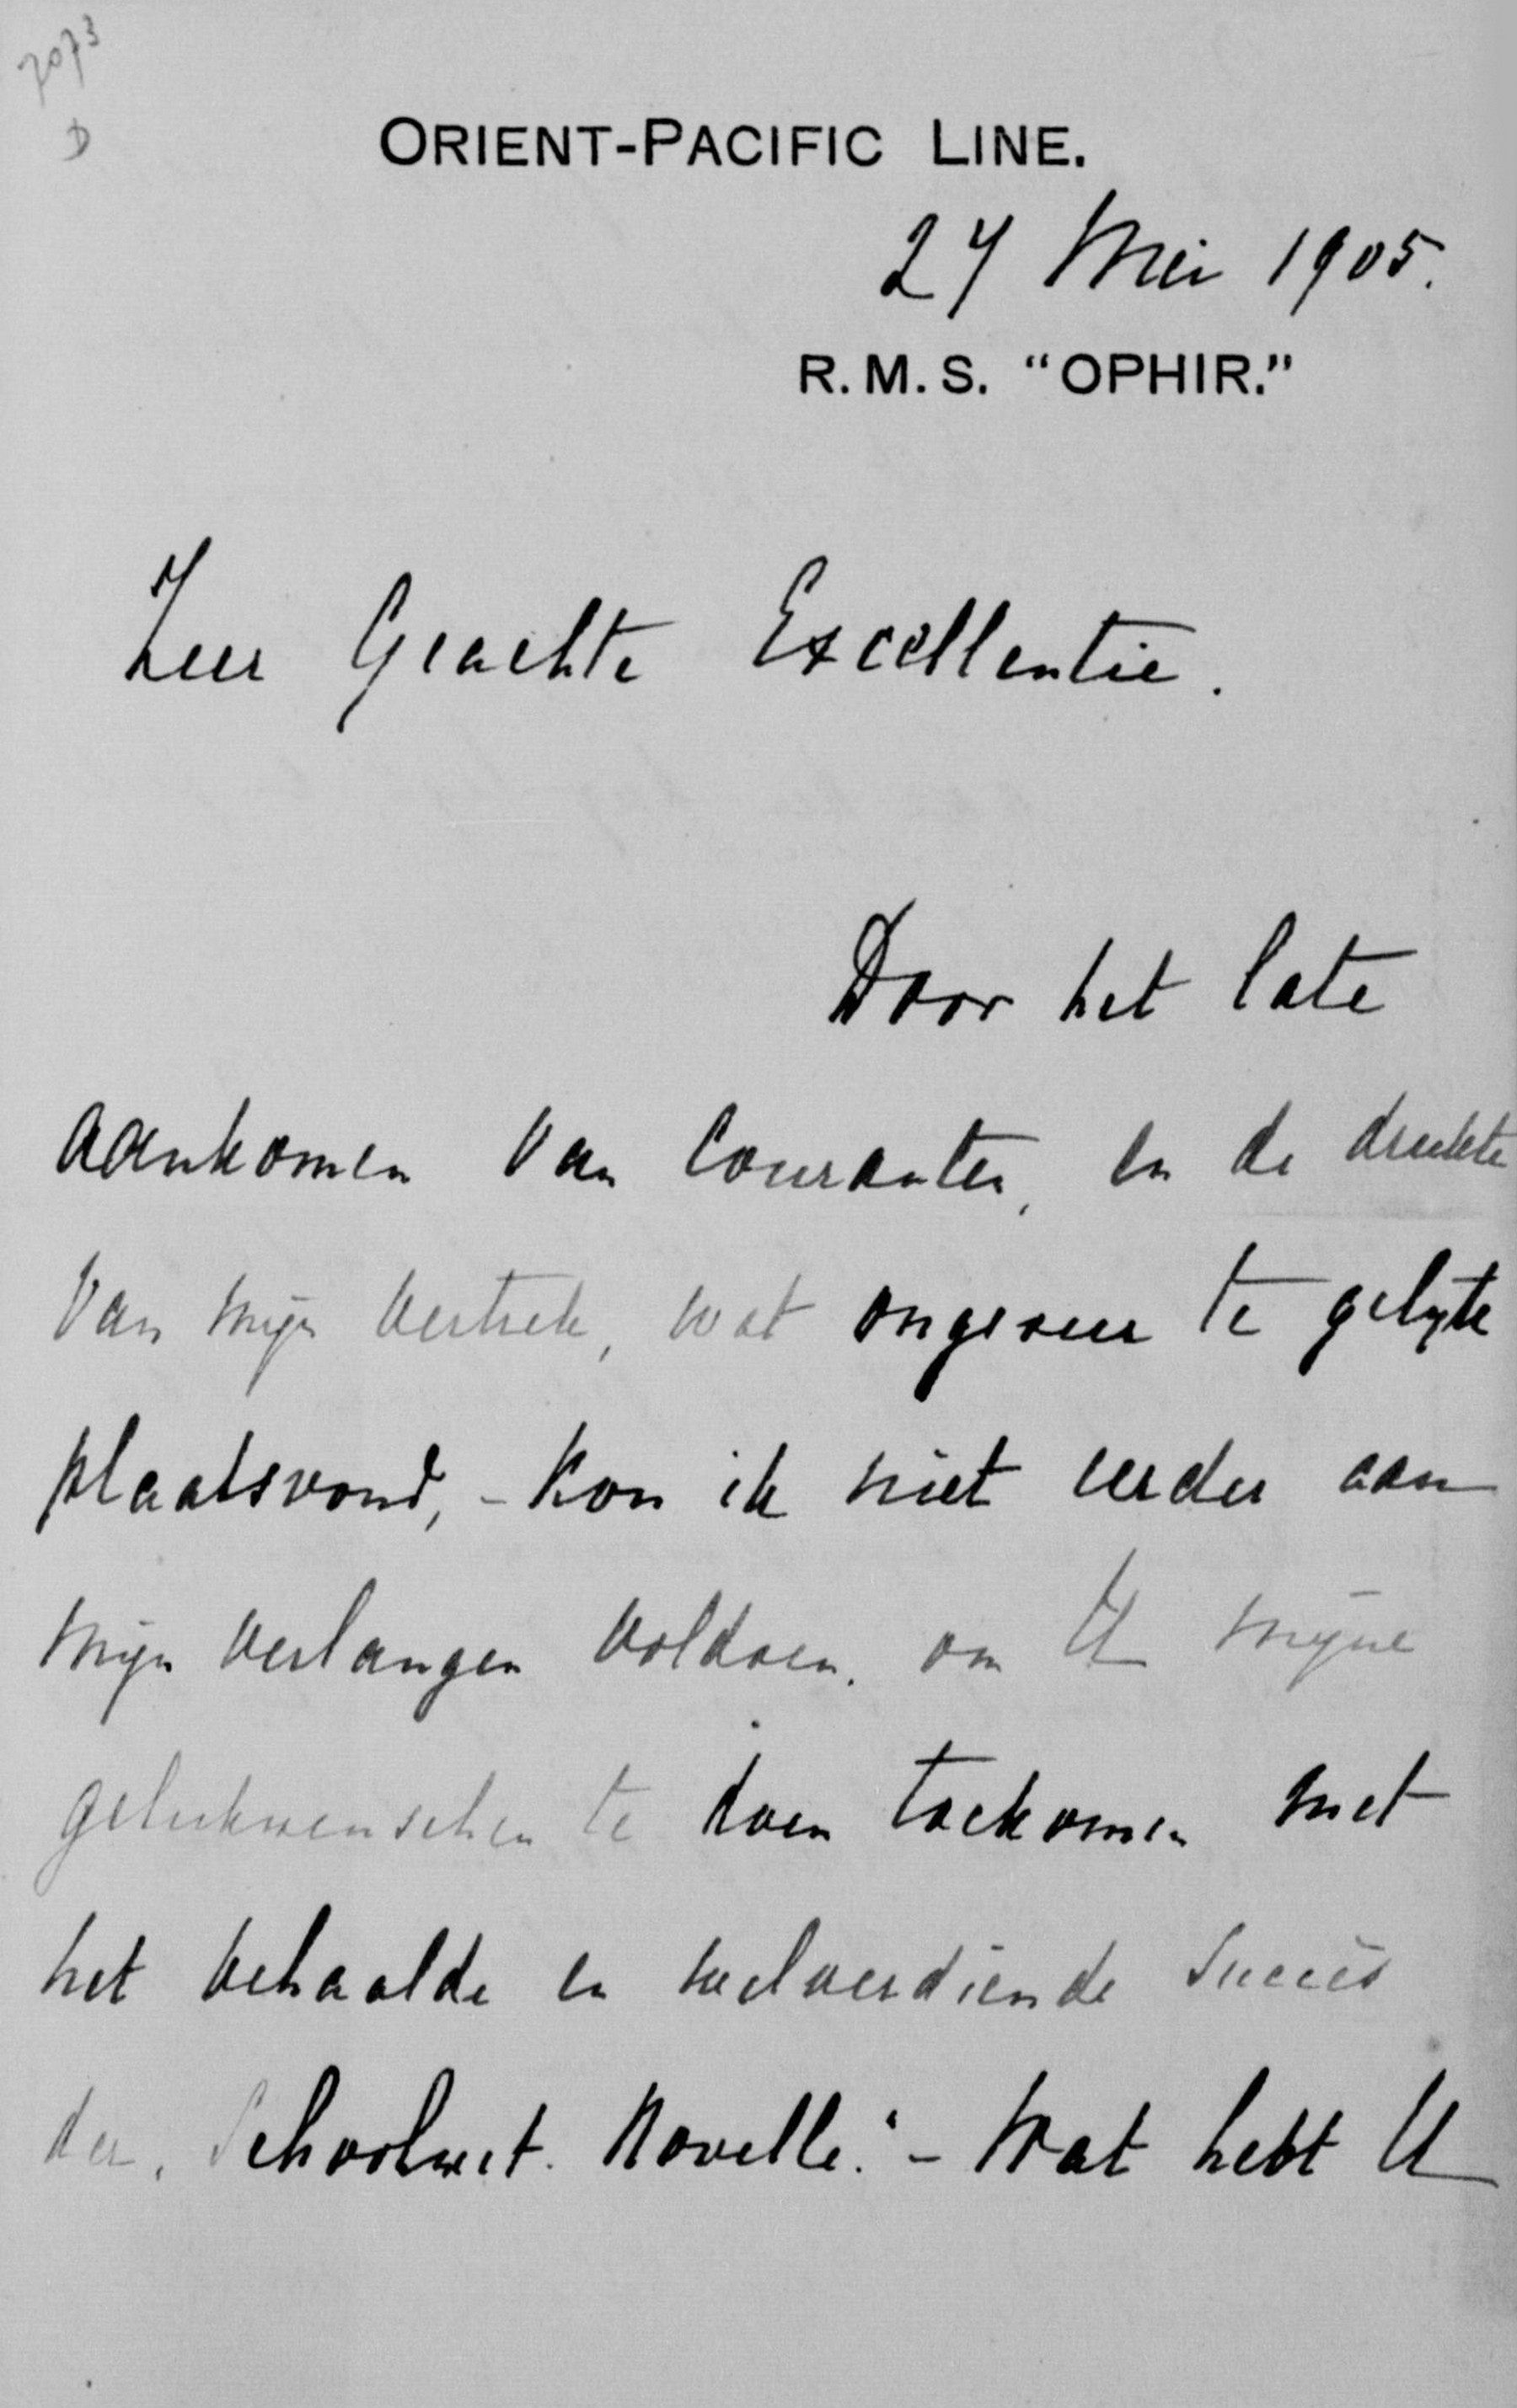 7073
D
ORIENT-PACIFIC LINE.
27 Mei 1905.
R.M.S. "OPHIR."
Zeer Geachte Excellentie.
Door het late
aankomen van Couranten, en de drukte
van mijn vertrek, wat ongeveer te gelijke
plaatsvond, - kon ik niet eerder aan
mijn verlangen voldoen. om U mijne
gelukwenschen te doen toekomen met
het behaalde en welverdiende succès
der "Schoolwet. Novelle." - Wat hebt U